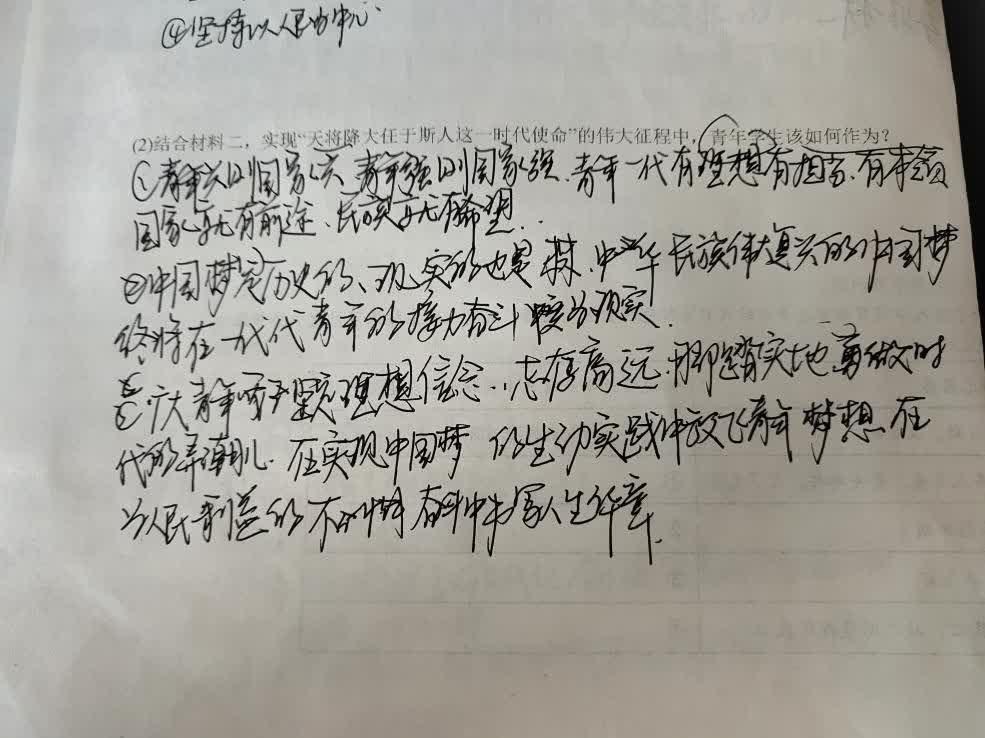 ④坚持以人民为中心.
(2)结合材料二，实现“天将降大任于斯人这一时代使命”的伟大征程中，青年学生该如何作为？
①青年兴则国家兴,青年强则国家强.青年一代有理想有担当.有本领
国家就有前途.民族就有希望.
②中国梦是历史的、现实的也是未来.中华民族伟大复兴的中国梦
终将在一代代青年的接力奋斗中变为现实.
③广大青年要坚定理想信念.志存高远.脚踏实地勇做时
代的弄潮儿.在实现中国梦的生动实践中放飞青年梦想在
为人民利益的不懈奋斗中书写人生华章.